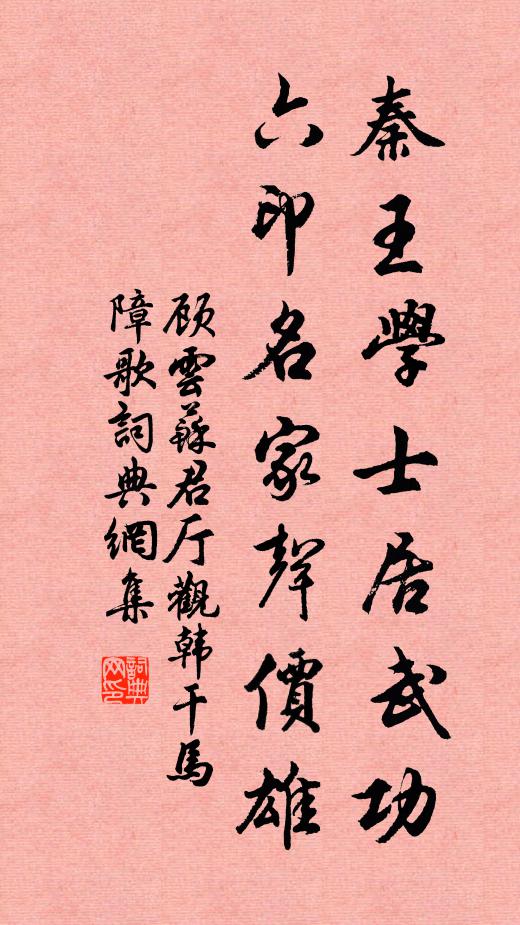 秦王學士居武功
六印名家聲價雄
顾雲蘇君厅觀韩干馬
障歌詞典網集
詞典網印